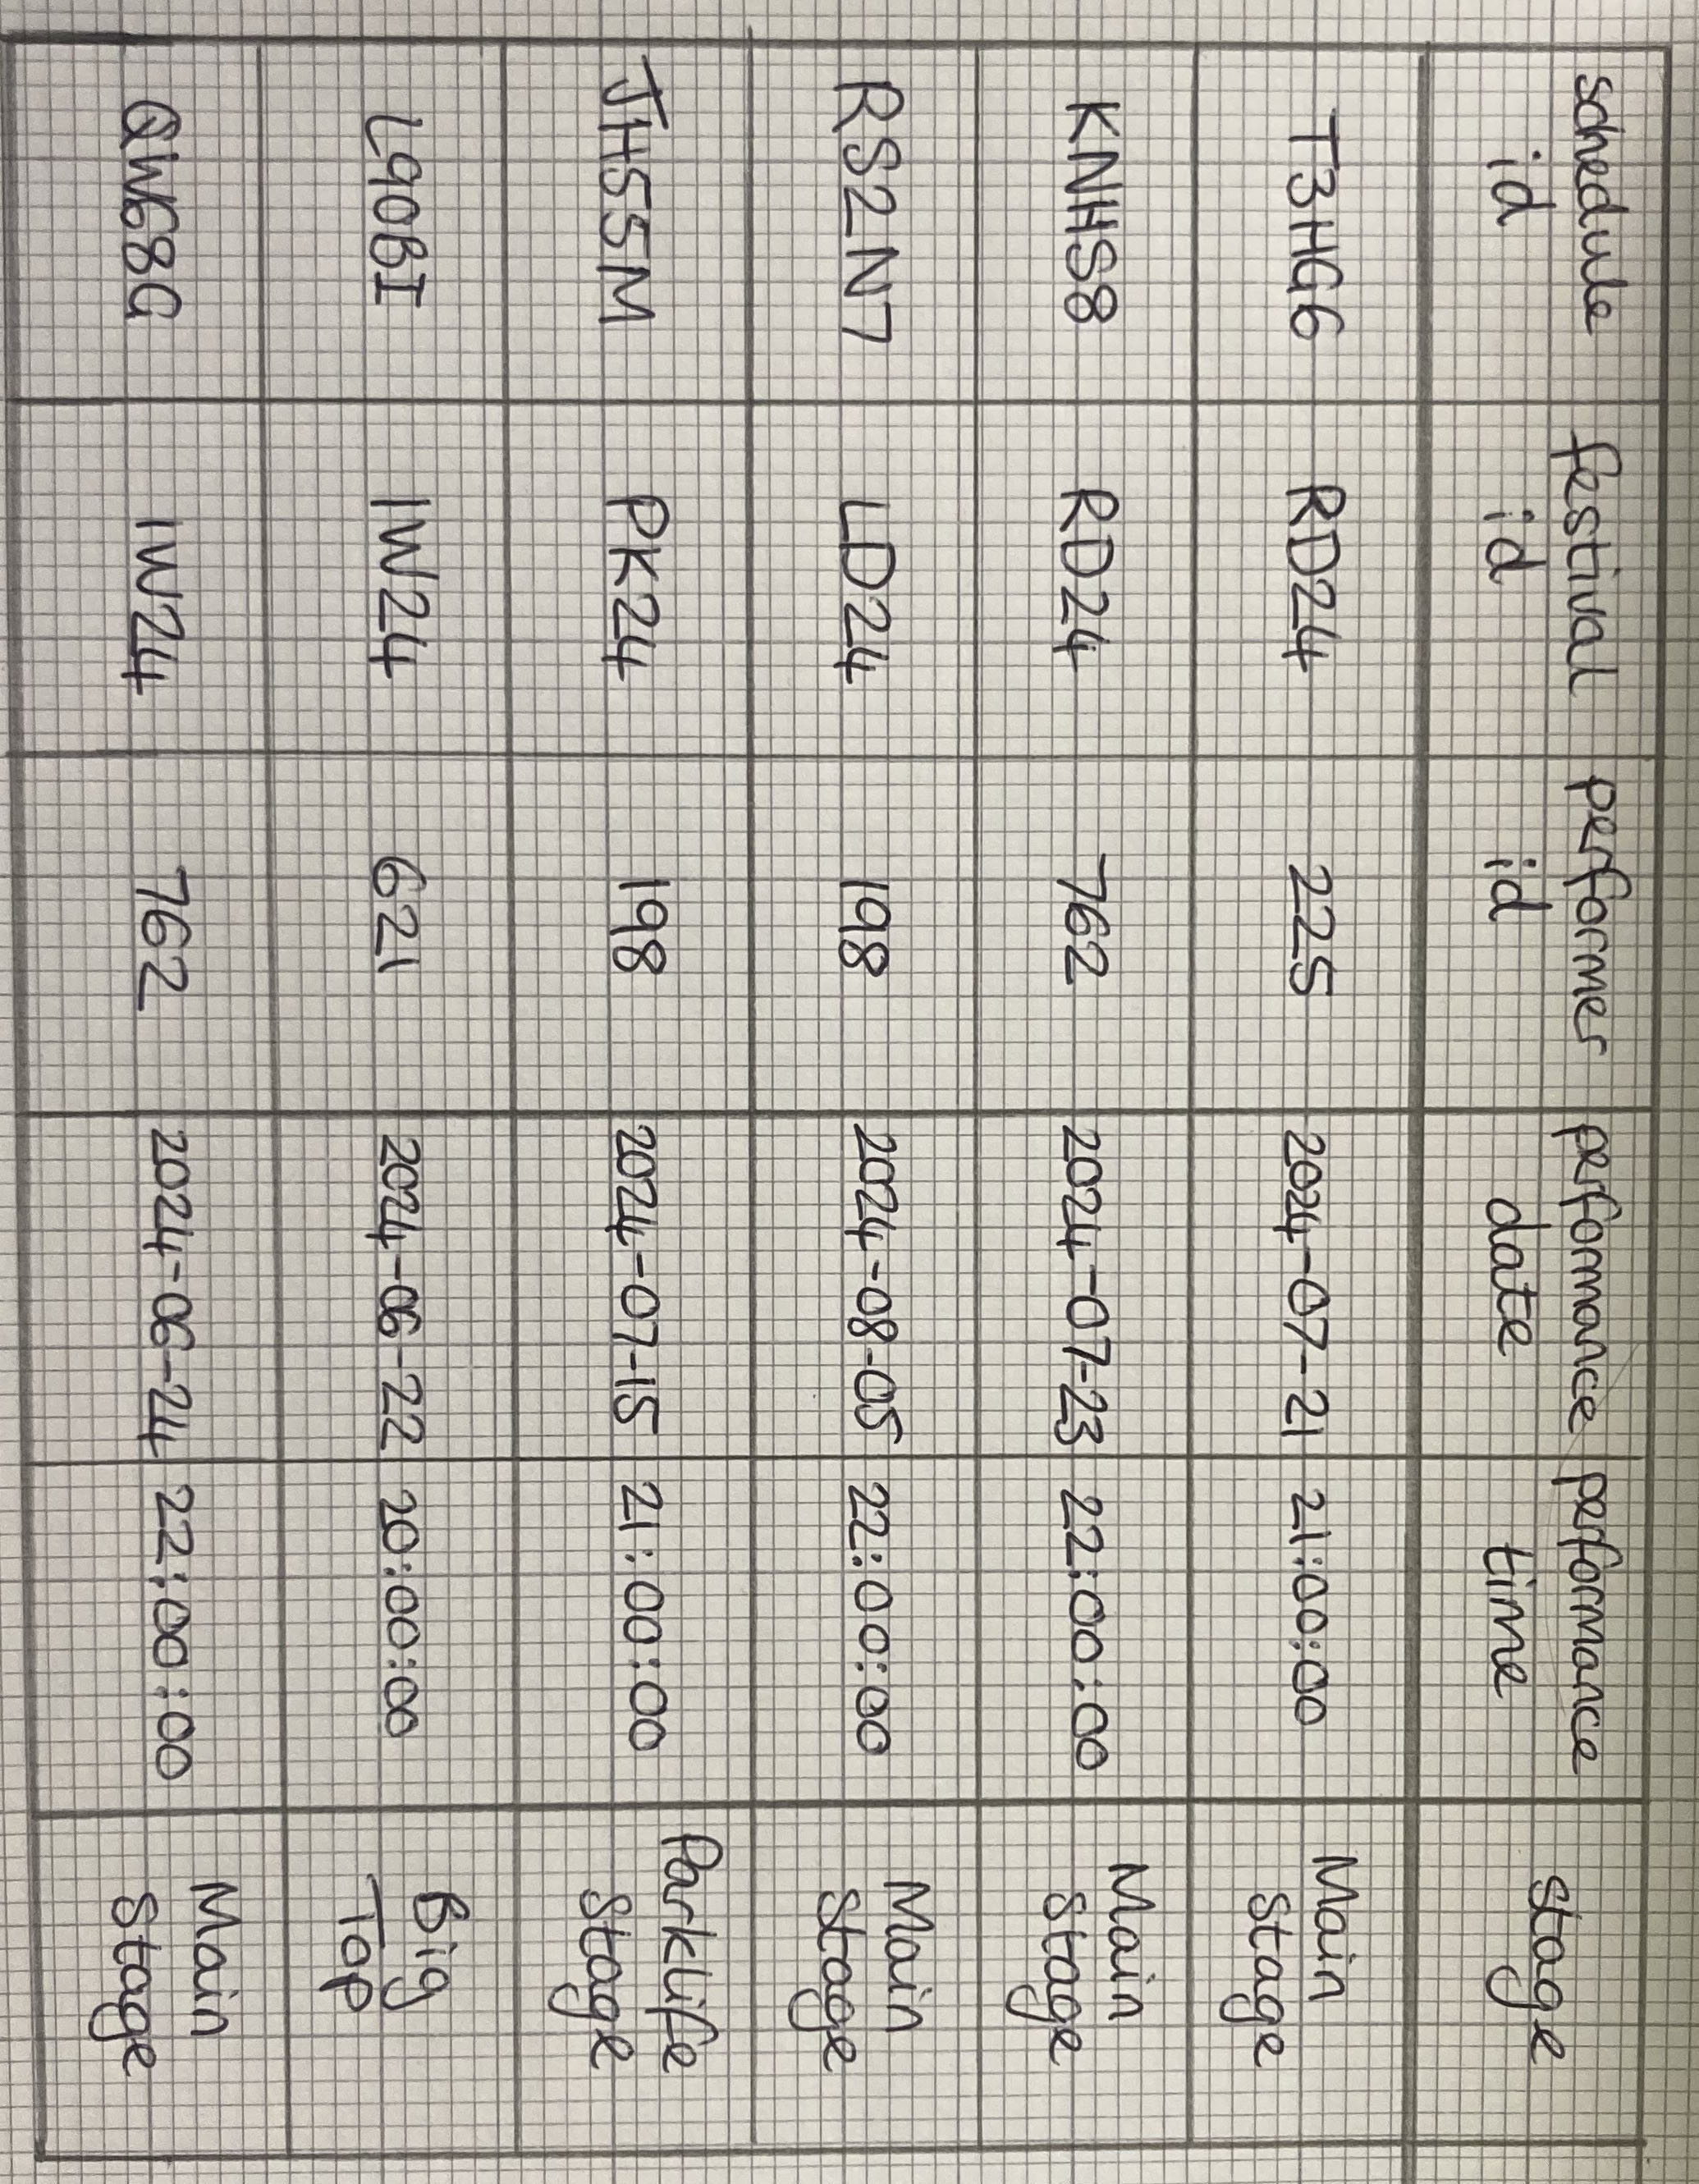 schedule id festival id performer id performance date performance time stage
T3HG6 RD24 225 2024-07-21 21:00:00 Main Stage
KNHS8 RD24 762 2024-07-23 22:00:00 Main Stage
RS2N7 LD24 198 2024-08-05 22:00:00 Main Stage
JH55M PK24 198 2024-07-15 21:00:00 Parklife Stage
L90BI IW24 621 2024-06-22 20:00:00 Big Top
QW68G IW24 762 2024-06-24 22:00:00 Main Stage